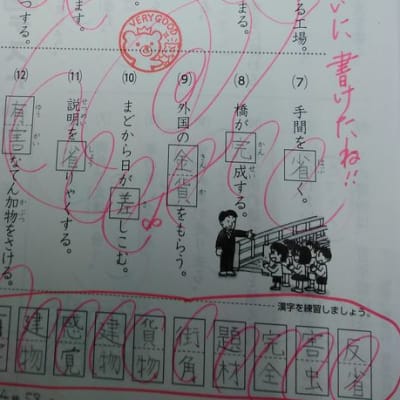 る工場。
まる。
する。
VERY GOOD
いに書けたね!!
(7) 手間を省く。
(8) 橋が完成する。
(9) 外国の金貨をもらう。
(10) まどから日が差しこむ。
(11) 説明を省りゃくする。
(12) 有害なてん加物をさける。
漢字を練習しましょう。
反省
害虫
完全
題材
街角
貨物
建物
感覚
建物